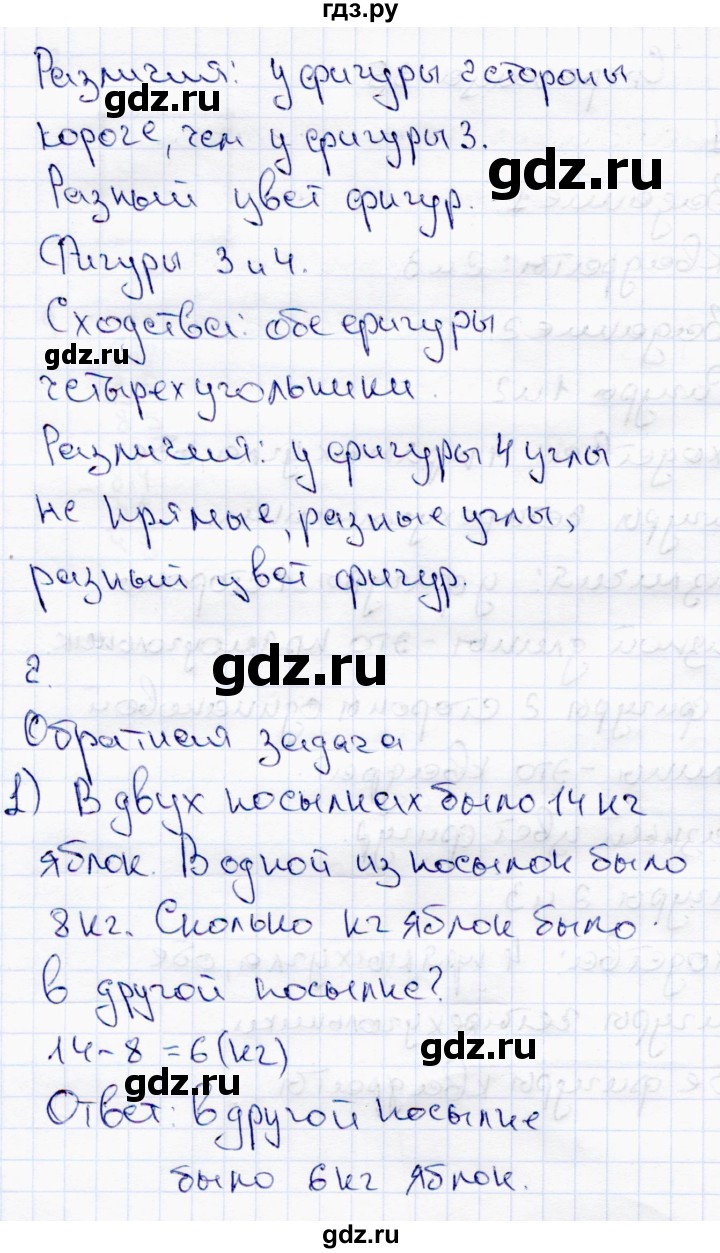 гдз.ру
Различия: у фигуры 2 стороны
gdz.ru
короче, чем у фигуры 3.
gdz.ru
Разный цвет фигур.
Фигуры 3 и 4.
Сходства: обе фигуры
gdz.ru
четырехугольники.
Различия: у фигуры 4 углы
не прямые, разные углы,
разный цвет фигур.
gdz.ru
2.
Обратная задача
1) В двух посылках было 14 кг
яблок. В одной из посылок было
8 кг. Сколько кг яблок было
в другой посылке?
14-8=6(кг)
gdz.ru
gdz.ru
Ответ: в другой посылке
было 6 кг яблок.
gdz.ru